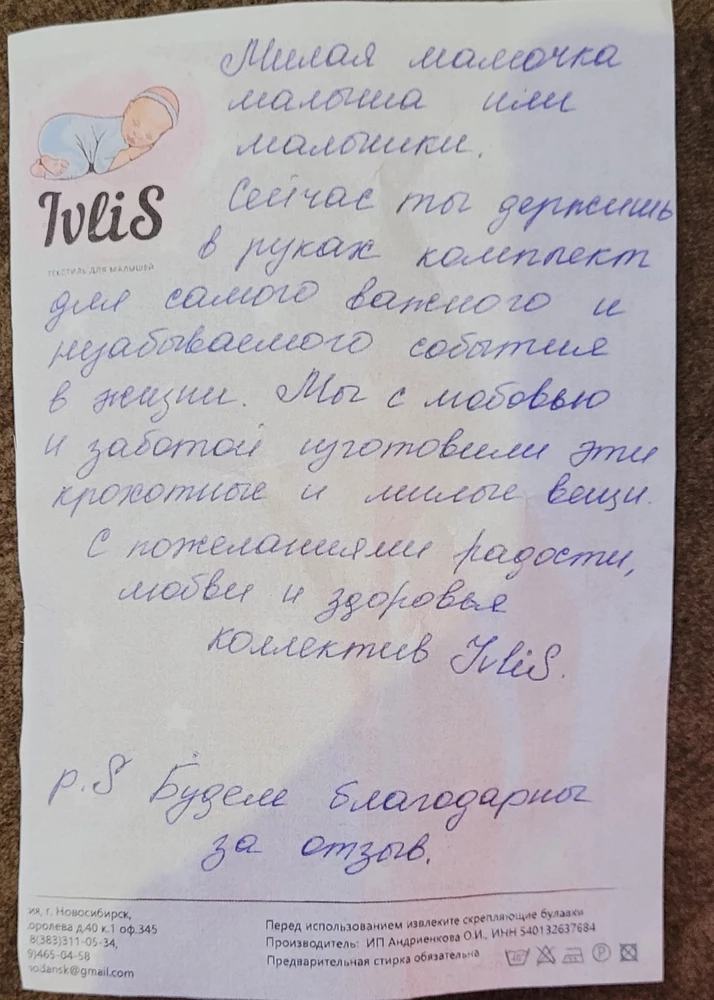 Милая мамочка
малыша или
малышки.
IvliS
Сейчас ты держишь
в руках комплект
ТЕКСТИЛЬ ДЛЯ МАЛЫШЕЙ
для самого важного и
незабываемого события
в жизни. Мы с любовью
и заботой изготовили эти
крохотные и милые вещи.
С пожеланиями радости,
любви и здоровья
коллектив IvliS.
p.S Будем благодарны
за отзыв.
ия, г. Новосибирск,
оролева д.40 к.1 оф.345
8(383)311-05-34,
9)465-04-58
nodansk@gmail.com
Перед использованием извлеките скрепляющие булавки
Производитель: ИП Андриенкова О.И., ИНН 540132637684
Предварительная стирка обязательна